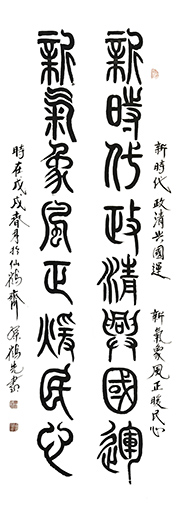 新時代政清興國運
新氣象風正煖民心
新時代政清興國運 新氣象風正暖民心
時在戊戌春月於仙鶴齋